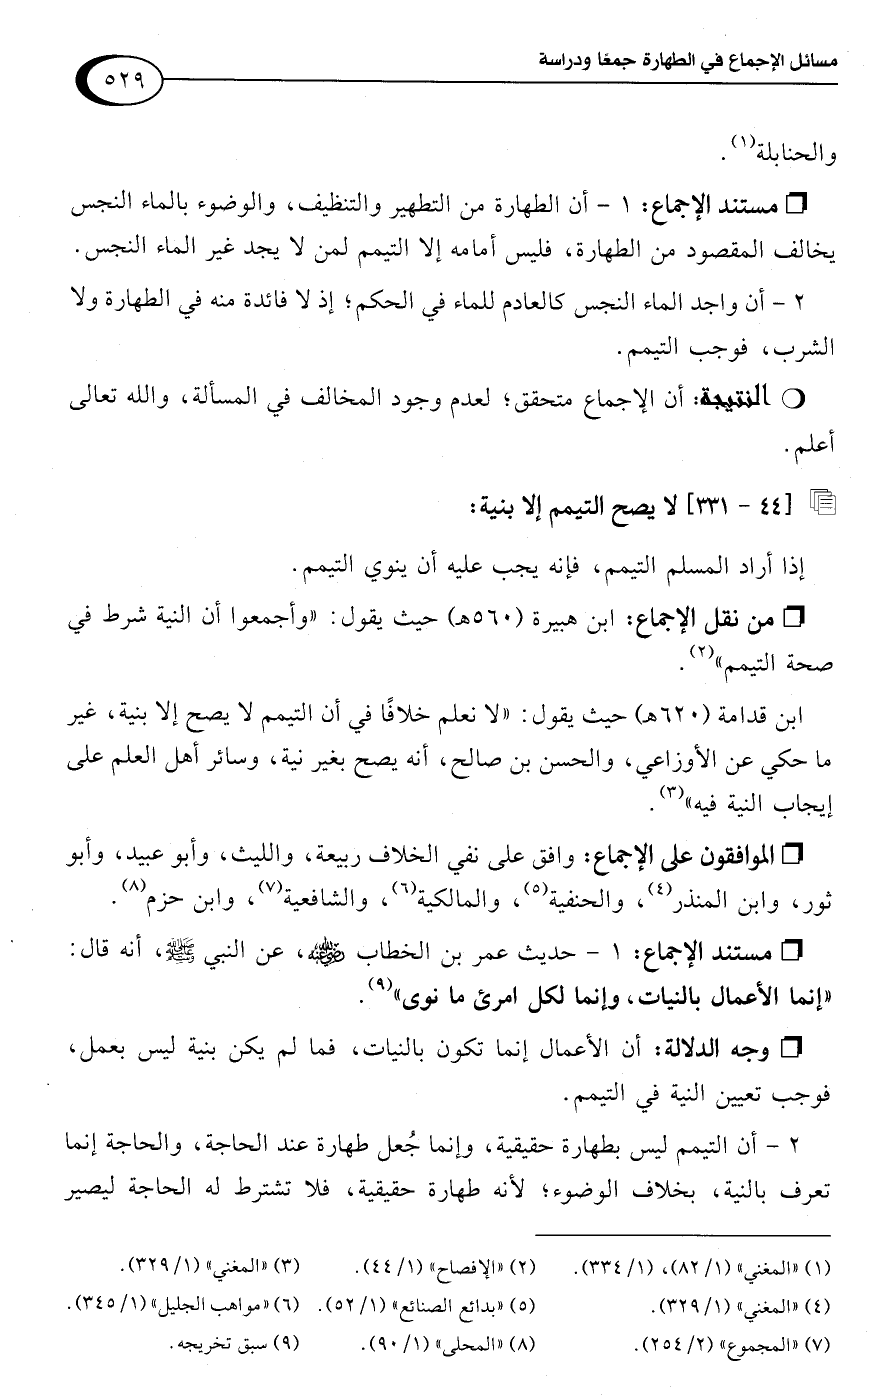 مسائل الإجماع في الطهارة جمعًا ودراسة
٥٢٩
والحنابلة(١).
مستند الإجماع: ١ - أن الطهارة من التطهير والتنظيف، والوضوء بالماء النجس
يخالف المقصود من الطهارة، فليس أمامه إلا التيمم لمن لا يجد غير الماء النجس.
٢ - أن واجد الماء النجس كالعادم للماء في الحكم؛ إذ لا فائدة منه في الطهارة ولا
الشرب، فوجب التيمم.
النتيجة: أن الإجماع متحقق؛ لعدم وجود المخالف في المسألة، والله تعالى
أعلم.
[٤٤ - ٣٣١] لا يصح التيمم إلا بنية:
إذا أراد المسلم التيمم، فإنه يجب عليه أن ينوي التيمم.
من نقل الإجماع: ابن هبيرة (٥٦٠هـ) حيث يقول: «وأجمعوا أن النية شرط في
صحة التيمم»(٢).
ابن قدامة (٦٢٠هـ) حيث يقول: «لا نعلم خلافًا في أن التيمم لا يصح إلا بنية، غير
ما حكي عن الأوزاعي، والحسن بن صالح، أنه يصح بغير نية، وسائر أهل العلم على
إيجاب النية فيه»(٣).
الموافقون على الإجماع: وافق على نفي الخلاف ربيعة، والليث، وأبو عبيد، وأبو
ثور، وابن المنذر(٤)، والحنفية(٥)، والمالكية(٦)، والشافعية(٧)، وابن حزم(٨).
مستند الإجماع: ١ - حديث عمر بن الخطاب رضي الله عنه، عن النبي ﷺ، أنه قال:
«إنما الأعمال بالنيات، وإنما لكل امرئ ما نوى»(٩).
وجه الدلالة: أن الأعمال إنما تكون بالنيات، فما لم يكن بنية ليس بعمل،
فوجب تعيين النية في التيمم.
٢ - أن التيمم ليس بطهارة حقيقية، وإنما جُعل طهارة عند الحاجة، والحاجة إنما
تعرف بالنية، بخلاف الوضوء؛ لأنه طهارة حقيقية، فلا تشترط له الحاجة ليصير
(١) «المغني» (١/ ٨٢)، (١/ ٣٣٤). (٢) «الإفصاح» (١/ ٤٤). (٣) «المغني» (١/ ٣٢٩).
(٤) «المغني» (١/ ٣٢٩). (٥) «بدائع الصنائع» (١/ ٥٢). (٦) «مواهب الجليل» (١/ ٣٤٥).
(٧) «المجموع» (٢/ ٢٥٤). (٨) «المحلى» (١/ ٩٠). (٩) سبق تخريجه.